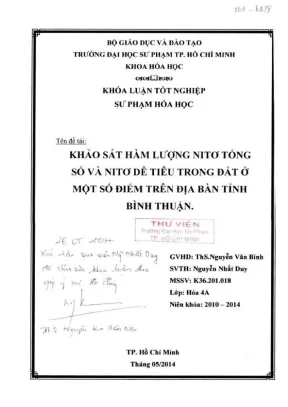 BỘ GIÁO DỤC VÀ ĐÀO TẠO
TRƯỜNG ĐẠI HỌC SƯ PHẠM TP. HỒ CHÍ MINH
KHOA HÓA HỌC
KHÓA LUẬN TỐT NGHIỆP
SƯ PHẠM HÓA HỌC
Tên đề tài:
KHẢO SÁT HÀM LƯỢNG NITƠ TỔNG
SỐ VÀ NITƠ DỄ TIÊU TRONG ĐẤT Ở
MỘT SỐ ĐIỂM TRÊN ĐỊA BÀN TỈNH
BÌNH THUẬN.
THƯ VIỆN
Trường Đại Học Sư Phạm
TP. HỒ CHÍ MINH
GVHD: ThS.Nguyễn Văn Bình
SVTH: Nguyễn Nhất Duy
MSSV: K36.201.018
Lớp: Hóa 4A
Niên khóa: 2010 – 2014
Nhất Duy
Nguyễn
TP. Hồ Chí Minh
Tháng 05/2014